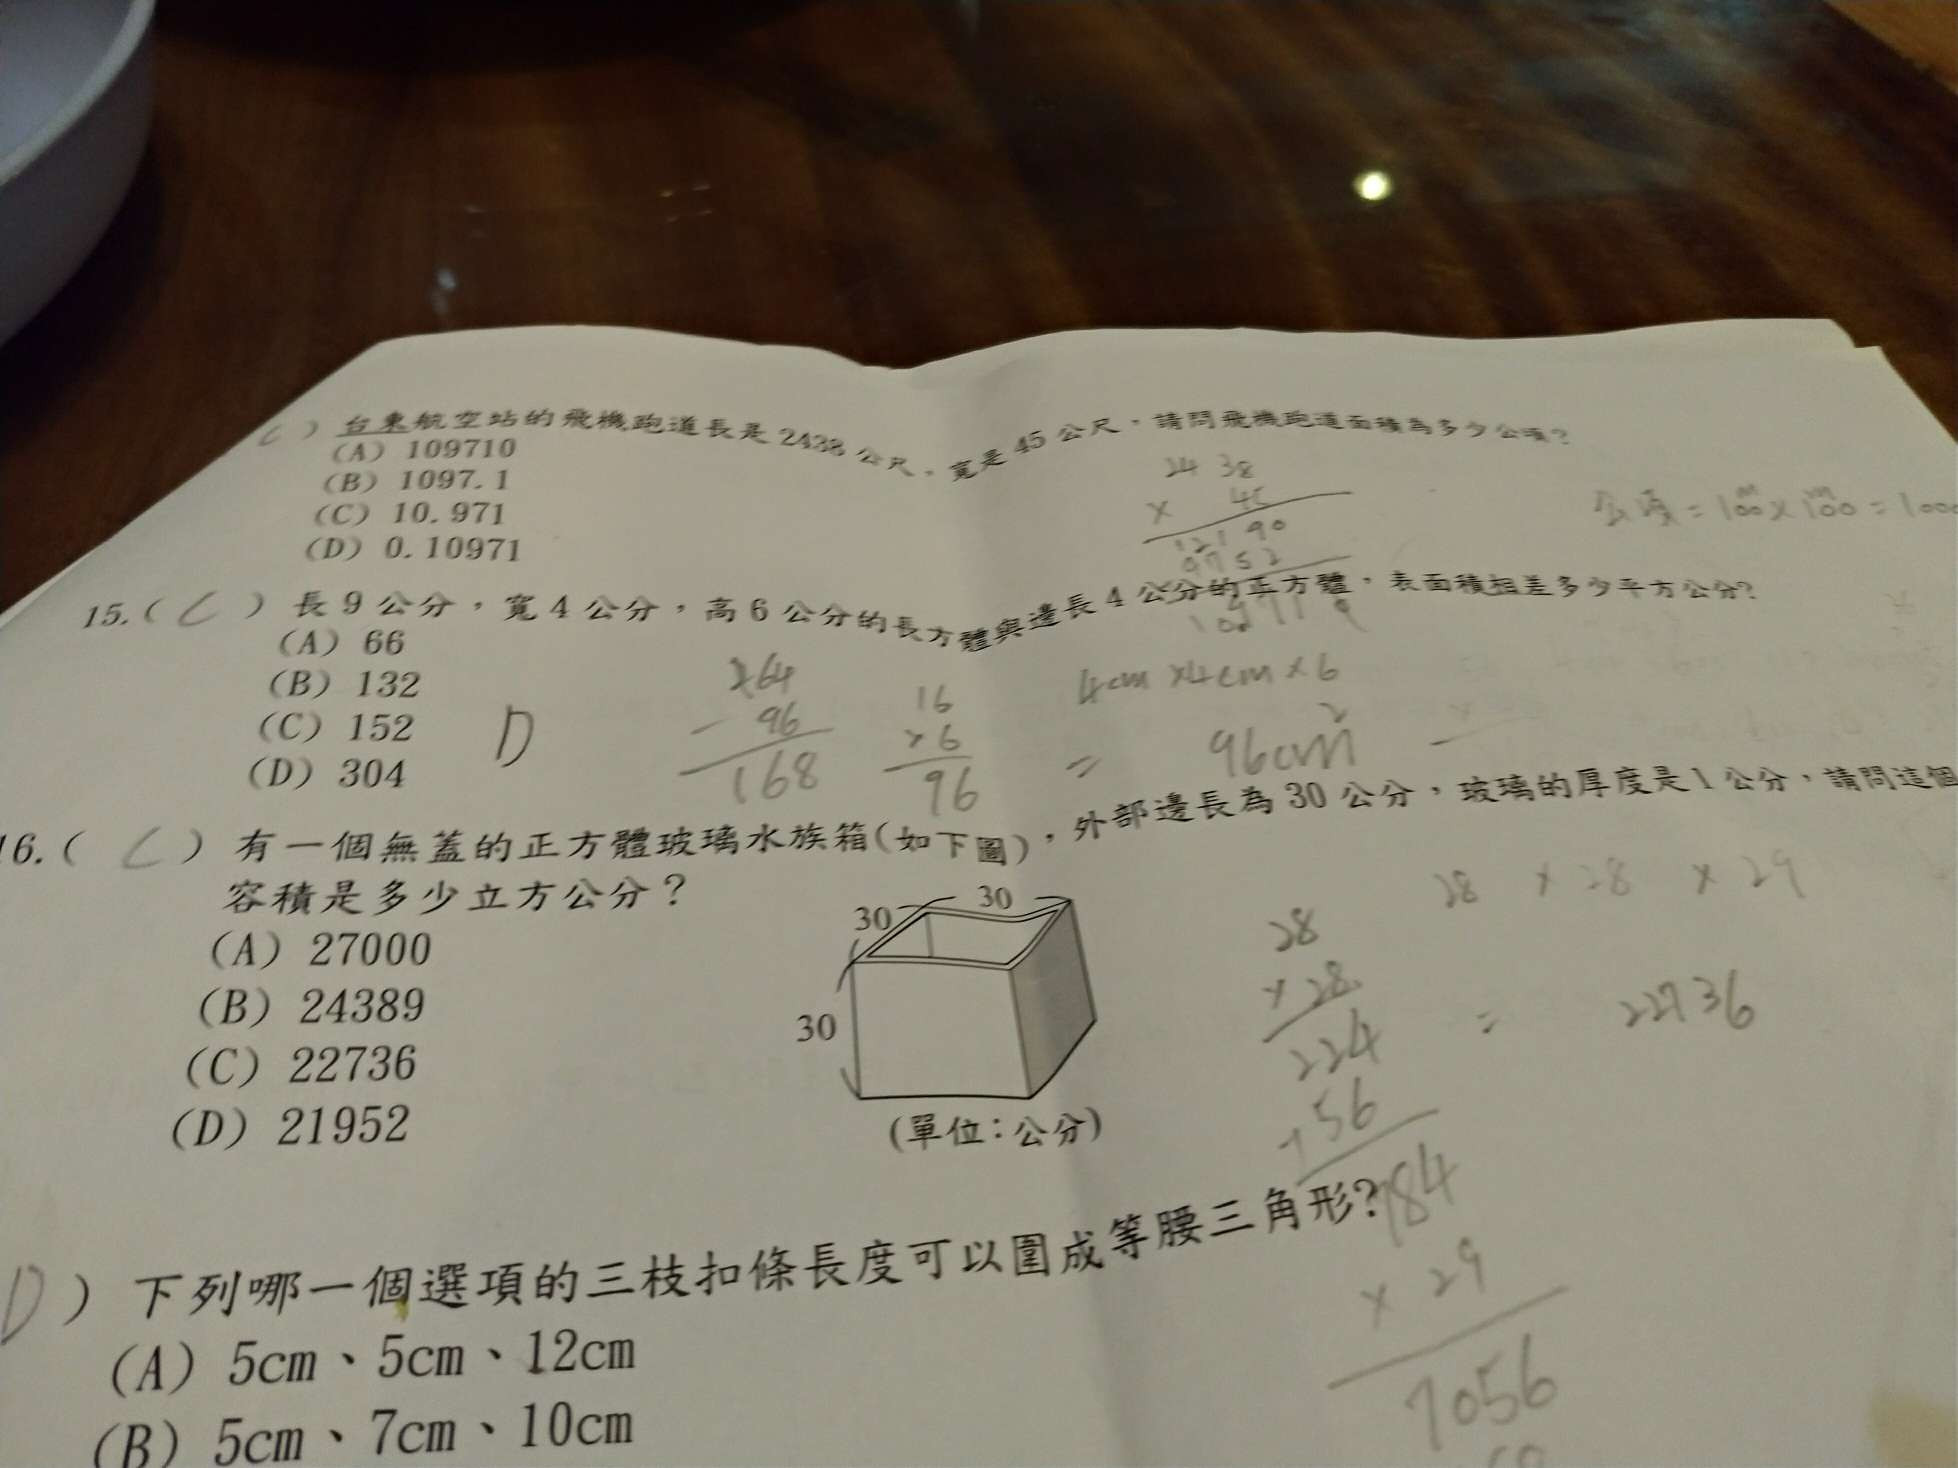 C ) 台東航空站的飛機跑道長是 2438 公尺,寬是 45 公尺,請問飛機跑道面積為多少公頃?
(A) 109710
(B) 1097.1
(C) 10.971
(D) 0.10971
24 38
× 45
121 90
97 52
公頃 = 100 m × 100 m = 1000
15. ( C ) 長 9 公分,寬 4 公分,高 6 公分的長方體與邊長 4 公分的正方體,表面積相差多少平方公分?
(A) 66
(B) 132
(C) 152
(D) 304
D
264
- 96
168
16
× 6
96
4cm × 4cm × 6
= 96cm²
16. ( C ) 有一個無蓋的正方體玻璃水族箱(如下圖),外部邊長為 30 公分,玻璃的厚度是 1 公分,請問這個
容積是多少立方公分?
(A) 27000
(B) 24389
(C) 22736
(D) 21952
30
30
30
(單位:公分)
28 × 28 × 29
= 22736
28
× 28
224
+ 56
784
× 29
7056
D ) 下列哪一個選項的三枝扣條長度可以圍成等腰三角形?
(A) 5cm、5cm、12cm
(B) 5cm、7cm、10cm